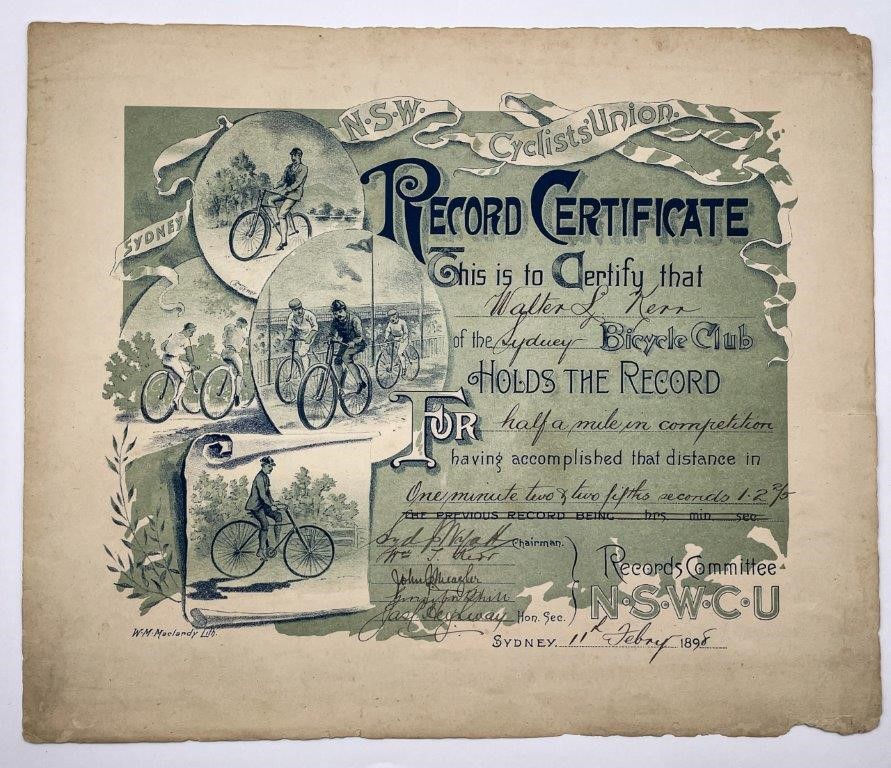 N·S·W·
Cyclists' Union.
SYDNEY
RECORD CERTIFICATE
This is to Certify that
Walter L Kerr
of the Sydney Bicycle Club
HOLDS THE RECORD
FOR half a mile in competition
having accomplished that distance in
One minute two & two fifths seconds 1.2 2/5
THE PREVIOUS RECORD BEING hrs. min. sec.
Chairman.
Wm J. Kerr
John J Meagher
Jas. Hon. Sec.
Records Committee
N·S·W·C·U
SYDNEY. 11th Febry 1898
W·M·Maclardy Lith.